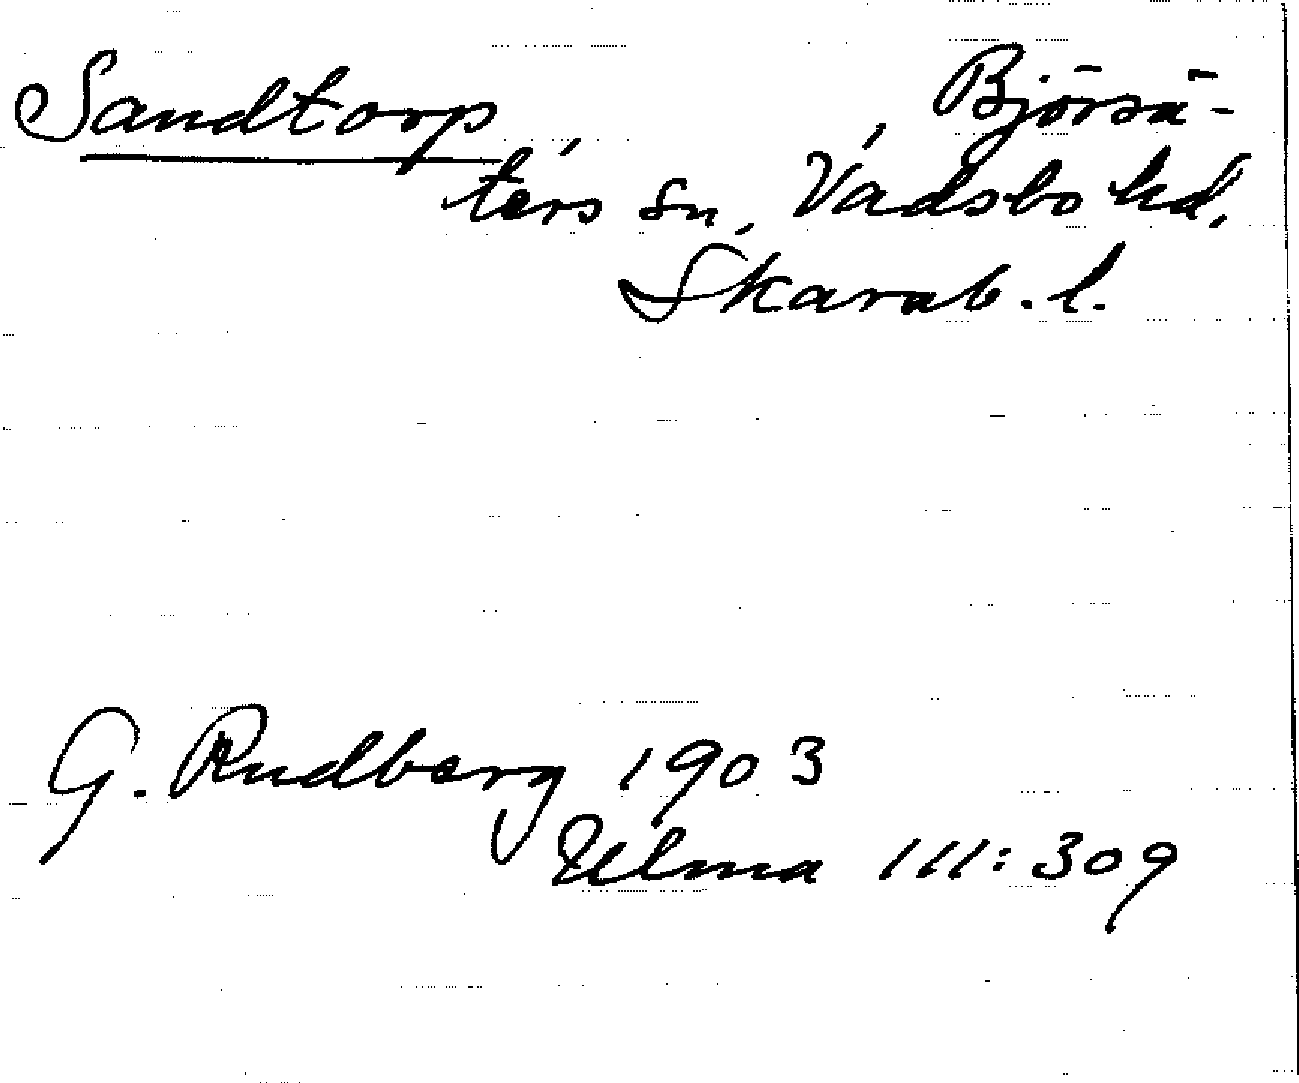 Sandtorp, Björsä-
ters sn, Vadsbo hd,
Skarab. l.
G. Rudberg 1903
Ulma 111: 309